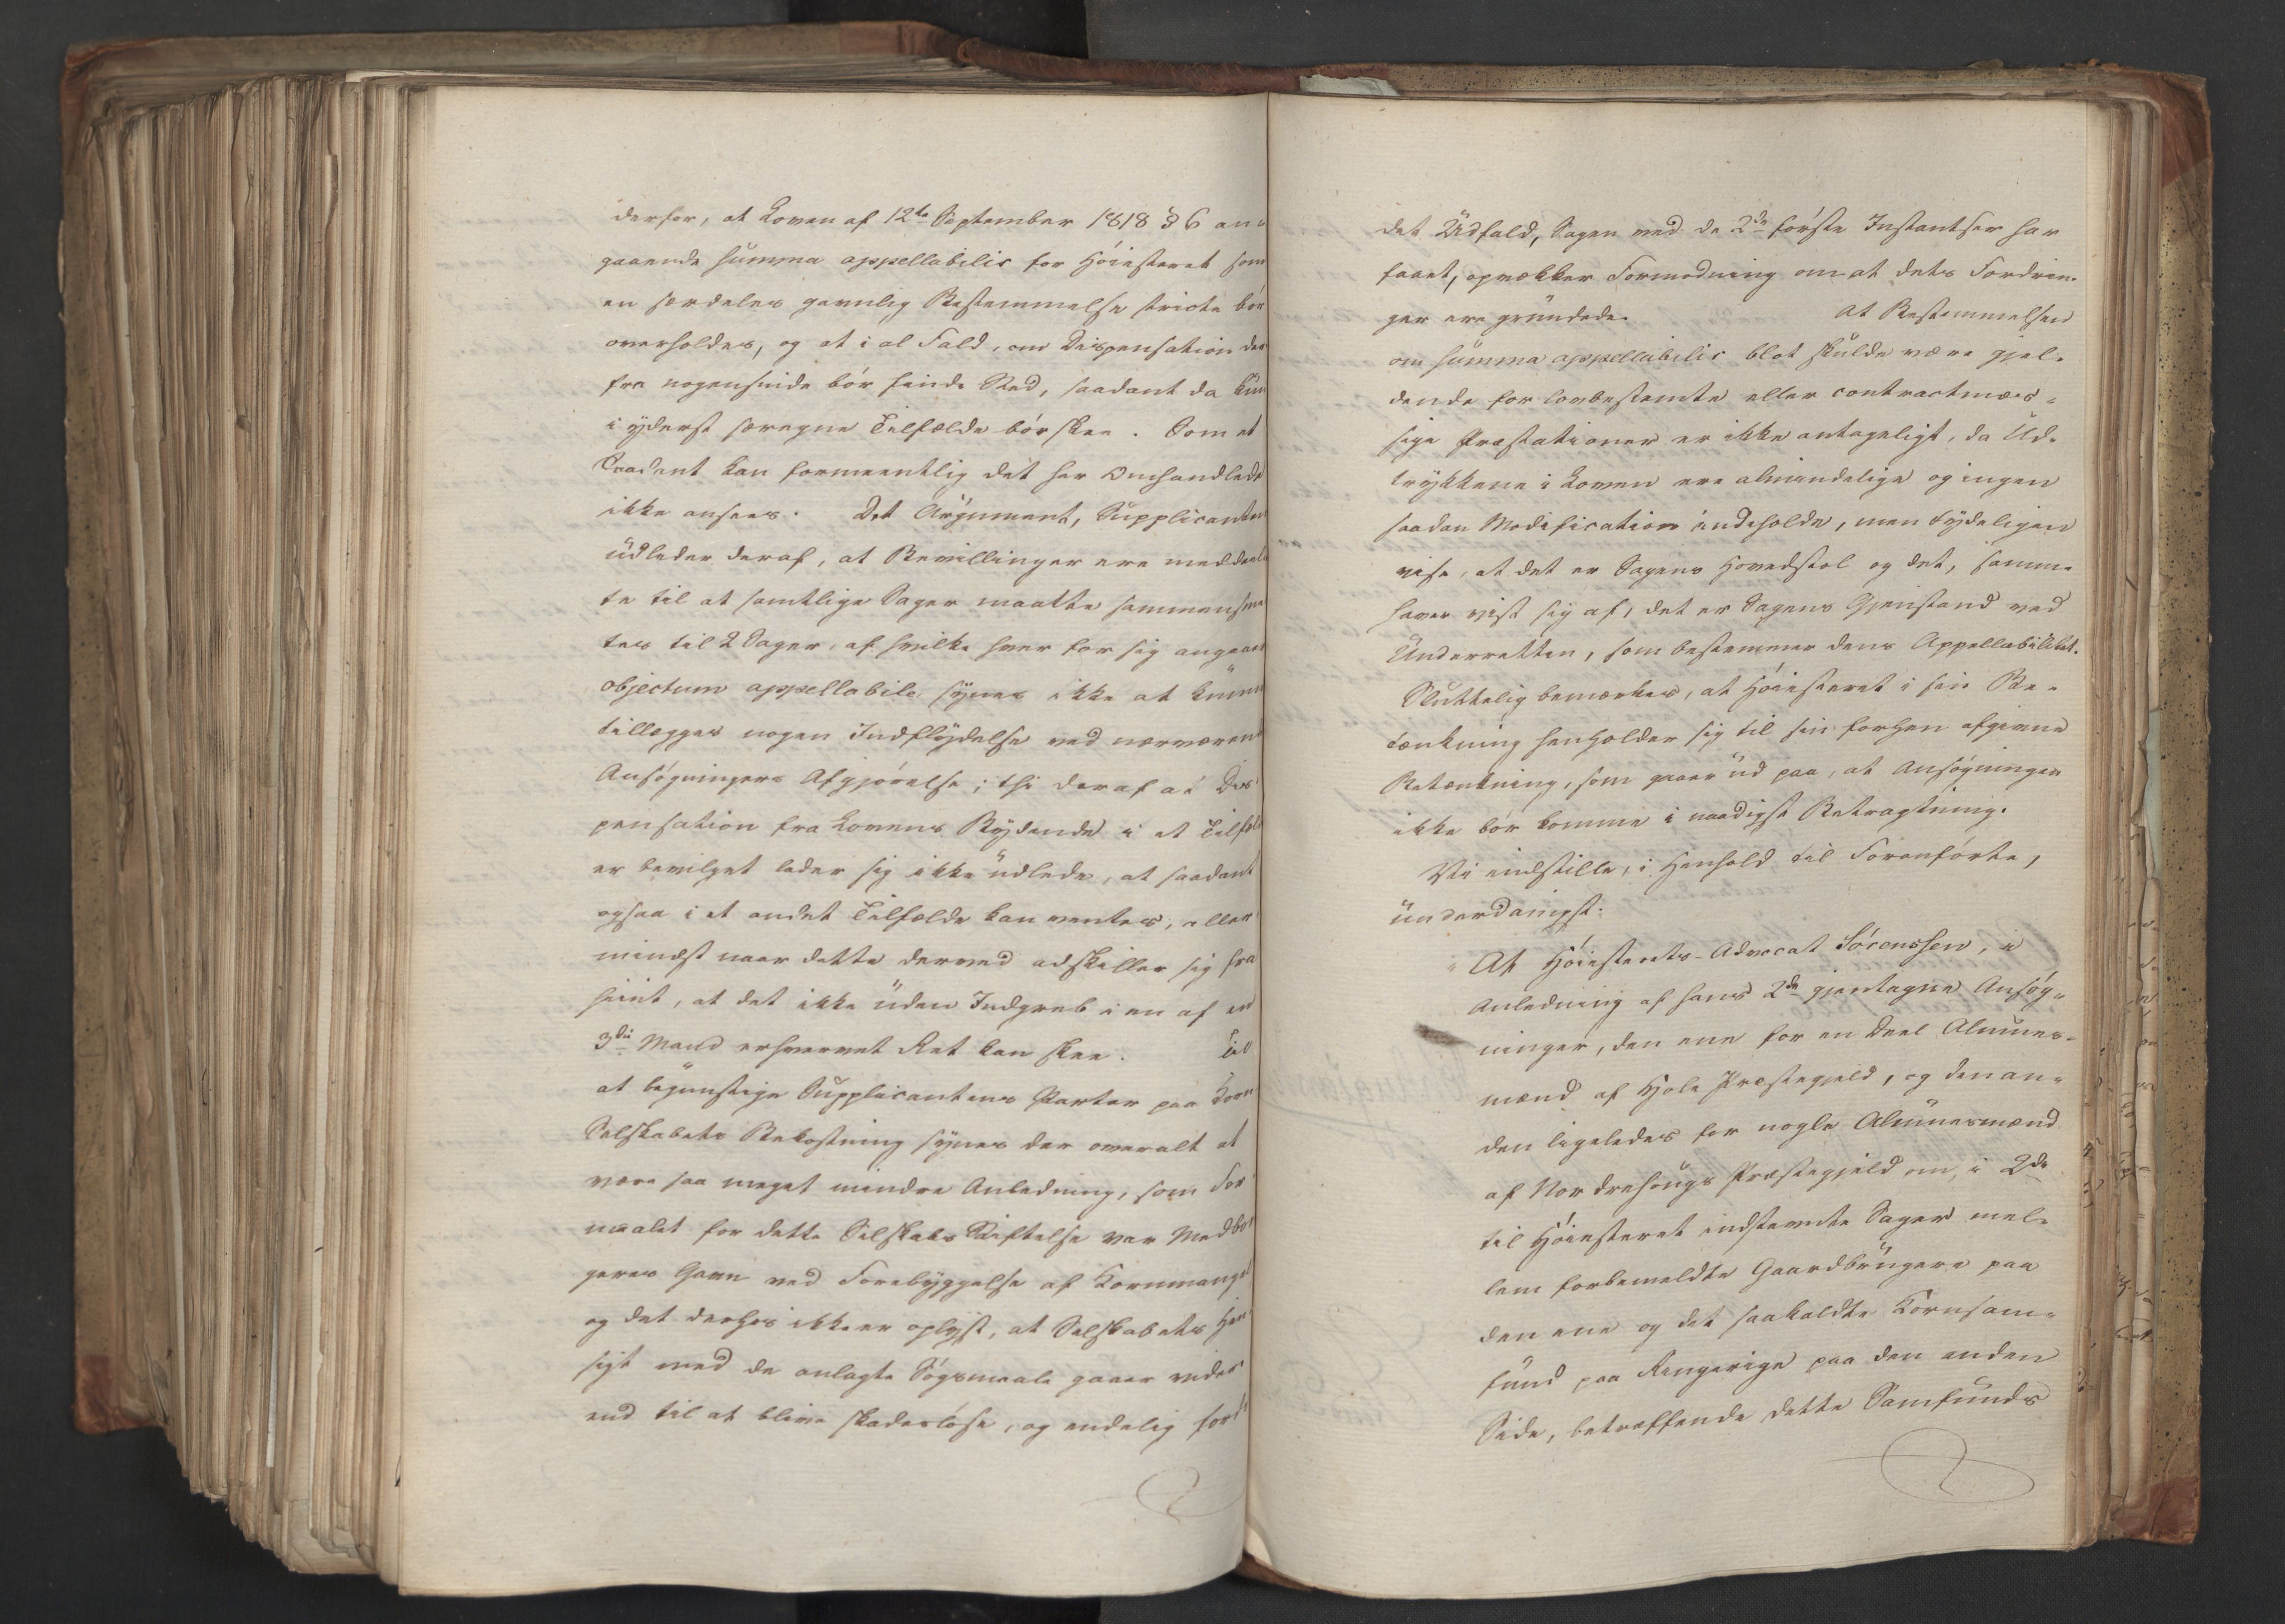 derfor, at Loven af 12te September 1818 § 6 an-
gaaende summa appellabilis for Høiesteret som
en særdeles gavnlig Bestemmelse stricte bør
overholdes, og at i al Fald, om Dispensation der
fra nogensinde bør finde Sted, saadant da kun
i yderst særegne Tilfælde bør skee. Som et
saadant kan formeentlig det her Omhandlede
ikke ansees. Det Argument, Supplicanten
udleder deraf, at Bevillinger ere meddeel
te til at samtlige Sager maatte sammensæt
tes til 2 Sager, af hvilke hver for sig angaaer
objectum appellabile synes ikke at kunne
tillægges nogen Indflydelse ved nærværende
Ansøgningers Afgjørelse; thi deraf at Dis
pensation fra Lovens Bydende i et Tilfælde
er bevilget lader sig ikke udlede, at saadant
ogsaa i et andet Tilfælde kan ventes, aller
mindst naar dette derved adskiller sig fra
hiint, at det ikke uden Indgreb i en af en
3die Mand erhvervet Ret kan skee. Til
at begunstige Supplicantens Parter paa Korn
Selskabets Bekostning synes der overalt at
være saa meget mindre Anledning, som For
maalet for dette Selskabs Stiftelse var Medbor
geres Gavn ved Forebyggelse af Kornmangel
og det derhos ikke er oplyst, at Selskabets Hen
sigt med de anlagte Søgsmaale gaaer videre
end til at blive skadesløse, og endelig fordi
det Udfald, Sagen ved de 2de første Instantser har
faaet, opvækker Formodning om at dets Fordrin-
ger ere grundede. At Bestemmelsen
om summa appellabilis blot skulde være gjel-
dende for lovbestemte eller contractmæs-
sige Præstationer er ikke antageligt, da Ud-
trykkene i Loven ere almindelige og ingen
saadan Modification indeholde, men tydeligen
vise, at det er Sagens Hovedstol og det, samme
haver rist sig af, det er Sagens Gjenstand ved
Underretten, som bestemmer dens Appellabilitet.
Sluttelig bemærkes, at Høiesteret i sin Be-
tænkning henholder sig til sin forhen afgivne
Betænkning, som gaaer ud paa, at Ansøgningen
ikke bør komme i naadigst Betragtning.
Vi indstille, i Henhold til Foranførte,
underdanigst:
"At Høiesterets-Advocat Sörenssen, i
Anledning af hans 2de gjentagne Ansøg-
ninger, den ene for en Deel Almues-
mænd af Hole Præstegjeld, og den an-
den ligeledes for nogle Almuesmænd
af Nordrehougs Præstegjeld om, i 2de
til Høiesteret indstevnte Sager mel-
lem forbemeldte Gaardbrugere paa
den ene og det saakaldte Kornsam-
fund paa Ringerige paa den anden
Side, betræffende dette Samfunds